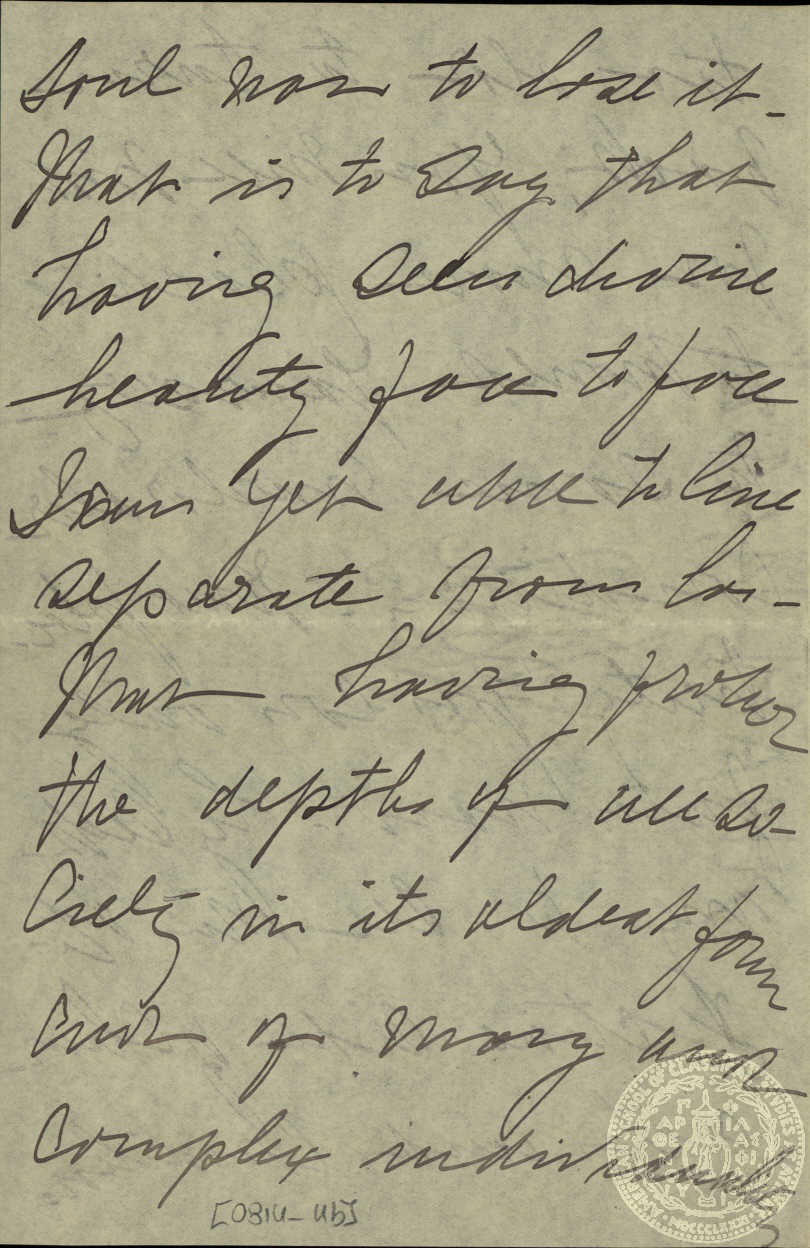 soul nor to lose it -
That is to say that
having seen divine
beauty face to face
I am yet able to live
separate from her -
That having probed
the depths of all so-
ciety in its oldest form
and of many and
complex individuals
AMERICAN SCHOOL OF CLASSICAL STUDIES AT ATHENS
MDCCCLXXXI